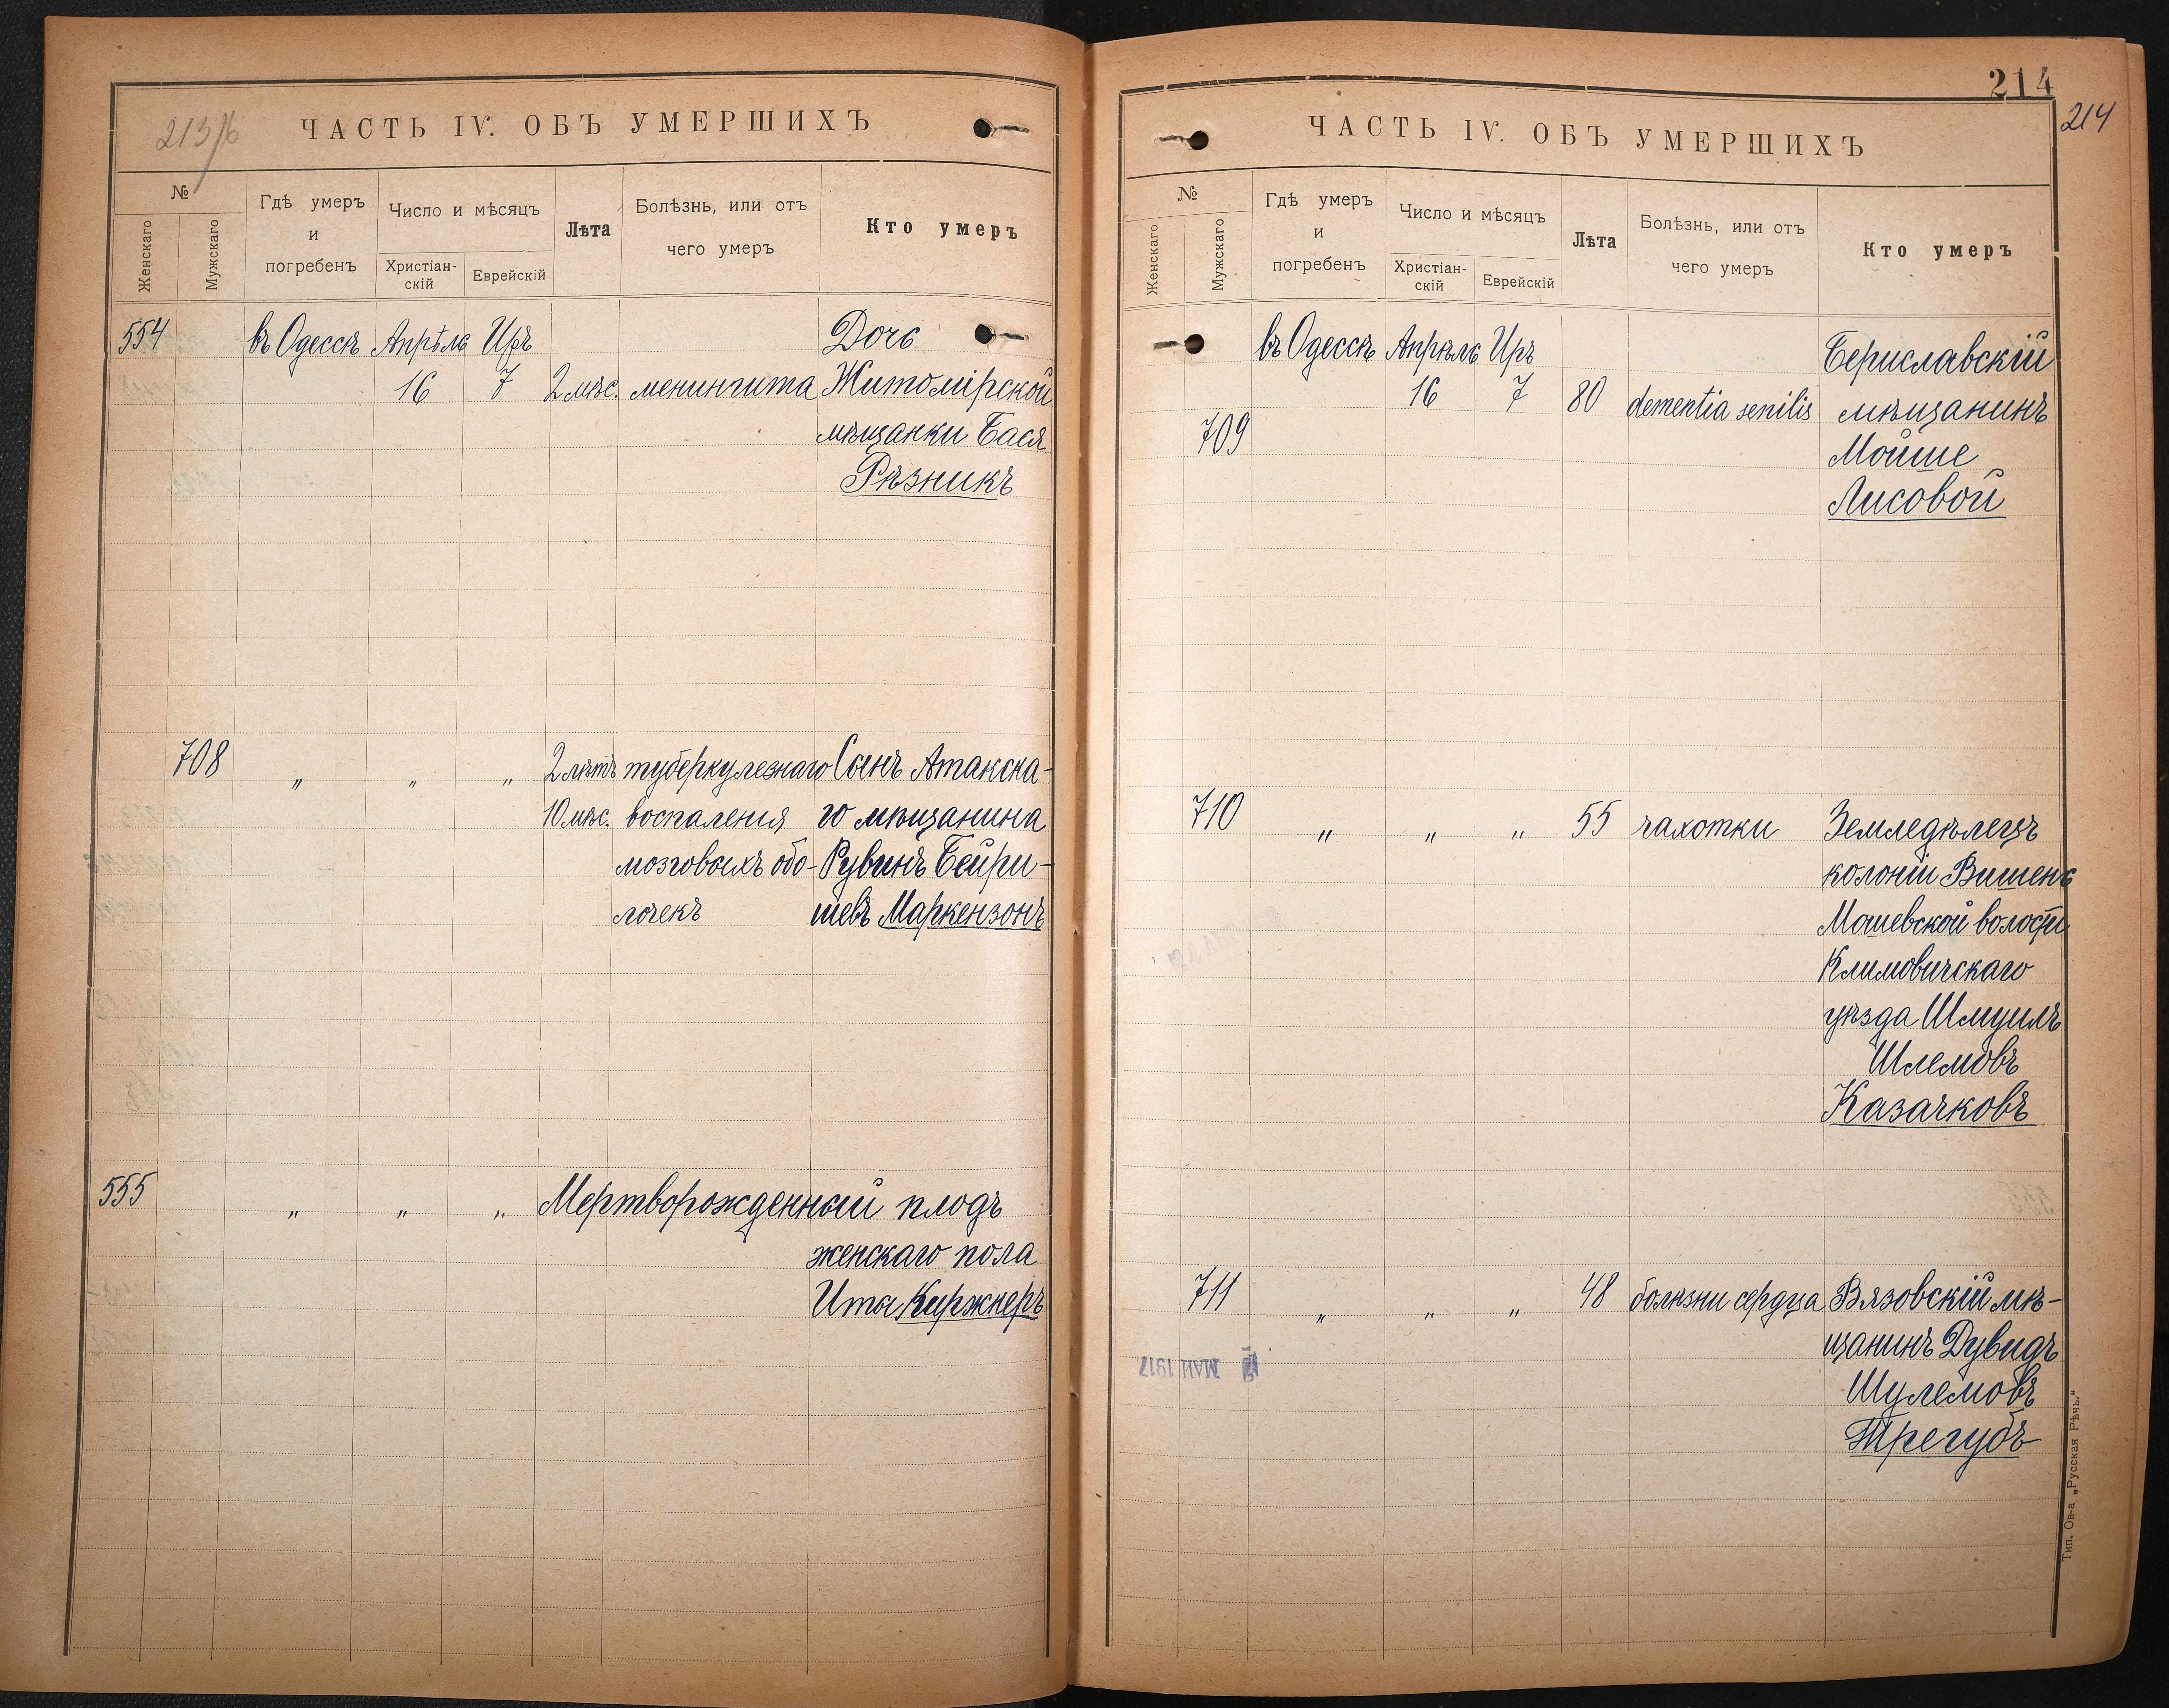 213/б
ЧАСТЬ IV. ОБЪ УМЕРШИХЪ
№
Женскаго
Мужскаго
Гдѣ умеръ
и
погребенъ
Число и мѣсяцъ
Христіан-
скій
Еврейскій
Лѣта
Болѣзнь, или отъ
чего умеръ
Кто умеръ
554 въ Одессѣ Апрѣль Иръ Дочь
16 7 2 мѣс. менингита Житомірской
мѣщанки Бася
Рѣзникъ
708 " " " 2 лѣтъ туберкулезнаго Сынъ Атакска-
10 мѣс. воспаленія го мѣщанина
мозговыхъ обо- Рувинъ Бейри-
лочекъ шевъ Маркензонъ
555 " " " Мертворожденный плодъ
женскаго пола
Иты Киржнеръ
214
214
ЧАСТЬ IV. ОБЪ УМЕРШИХЪ
№
Женскаго
Мужскаго
Гдѣ умеръ
и
погребенъ
Число и мѣсяцъ
Христіан-
скій
Еврейскій
Лѣта
Болѣзнь, или отъ
чего умеръ
Кто умеръ
въ Одессѣ Апрѣль Иръ Бериславскій
16 7 80 dementia senilis мѣщанинъ
709 Мойше
Лисовой
710 " " " 55 чахотки Земледѣлецъ
колоніи Вишень
Мошевской волости
Климовичскаго
уѣзда Шмуилъ
Шлемовъ
Казачковъ
711 " " " 48 болѣзни сердца Вязовскій мѣ-
щанинъ Дувидъ
Шулемовъ
Трегубъ
МАЙ 1917
Тип. Ов-а „Русская Рѣчь.“